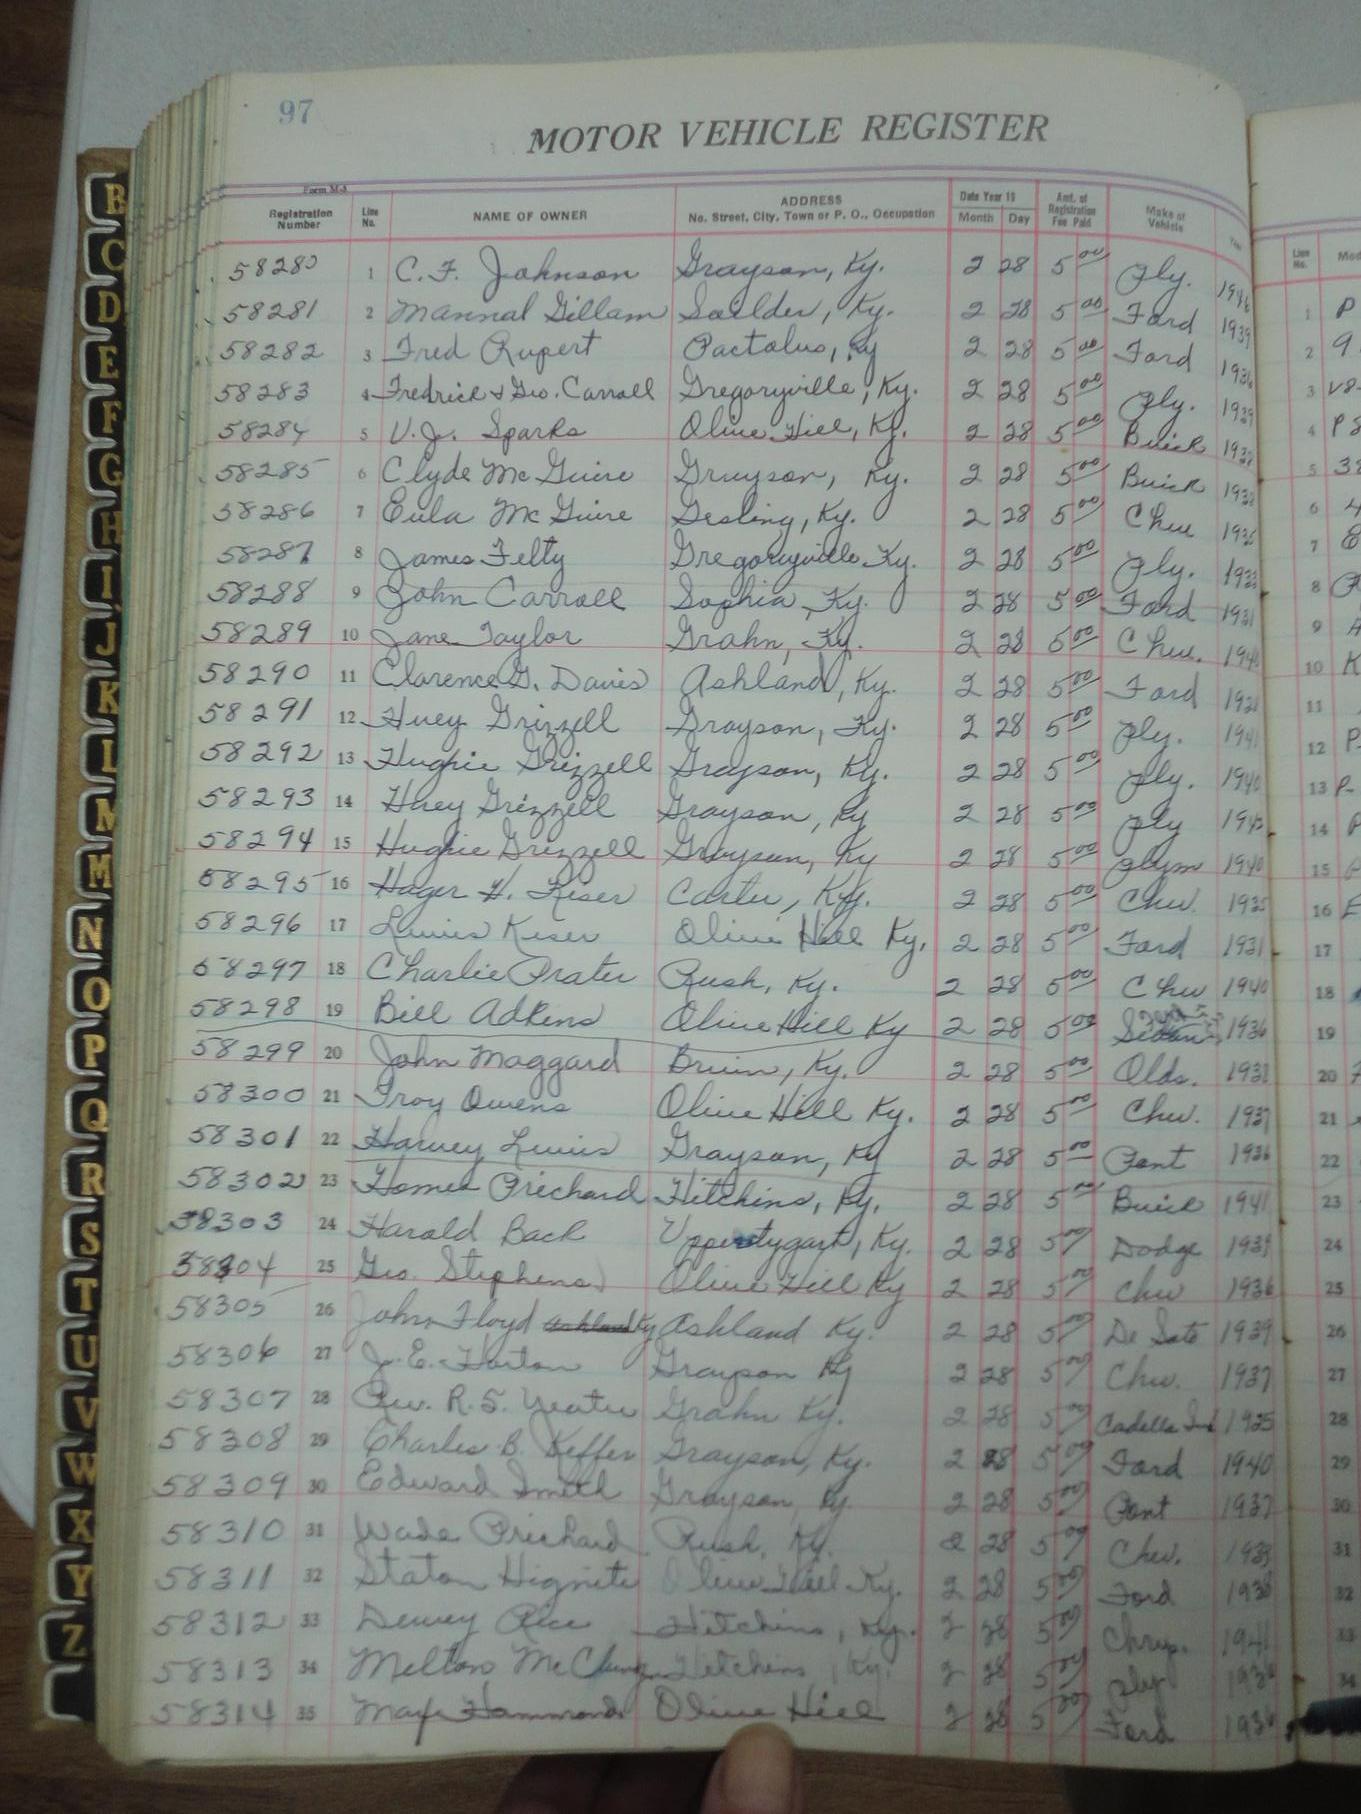 97
MOTOR VEHICLE REGISTER
Form M-8
Registration Number Line No. NAME OF OWNER ADDRESS No. Street, City, Town or P. O., Occupation Date Year 19 Month Day Amt. of Registration Fee Paid Make of Vehicle Year
58280 1 C. F. Johnson Grayson, Ky. 2 28 5 00 Ply. 1946
58281 2 Mannal Gillam Soilder, Ky. 2 28 5 00 Ford 1939
58282 3 Fred Rupert Pactolus, Ky 2 28 5 00 Ford 1936
58283 4 Fredrick & Geo. Carroll Gregoryville, Ky. 2 28 5 00 Ply. 1939
58284 5 V. J. Sparks Olive Hill, Ky. 2 28 5 00 Buick 1938
58285 6 Clyde McGuire Grayson, Ky. 2 28 5 00 Buick 1938
58286 7 Eula McGuire Gesling, Ky. 2 28 5 00 Chev 1935
58287 8 James Felty Gregoryville Ky. 2 28 5 00 Ply. 1933
58288 9 John Carroll Sophia, Ky. 2 28 5 00 Ford 1931
58289 10 Jane Taylor Grahn, Ky. 2 28 5 00 Chev. 1940
58290 11 Clarence G. Davis Ashland, Ky. 2 28 5 00 Ford 1931
58291 12 Huey Grizzell Grayson, Ky. 2 28 5 00 Ply. 1941
58292 13 Hughie Grizzell Grayson, Ky. 2 28 5 00 Ply. 1940
58293 14 Huey Grizzell Grayson, Ky 2 28 5 00 Ply 1940
58294 15 Hughie Grizzell Grayson, Ky 2 28 5 00 Plym 1940
58295 16 Hager H. Kiser Carter, Ky. 2 28 5 00 Chev. 1935
58296 17 Lewis Kiser Olive Hill Ky. 2 28 5 00 Ford 1931
58297 18 Charlie Prater Rush, Ky. 2 28 5 00 Chev 1940
58298 19 Bill Adkins Olive Hill Ky 2 28 5 00 Sedan 1936
58299 20 John Maggard Bruin, Ky. 2 28 5 00 Olds. 1938
58300 21 Troy Owens Olive Hill Ky. 2 28 5 00 Chev. 1937
58301 22 Harvey Lewis Grayson, Ky 2 28 5 00 Pont 1936
58302 23 Homer Prichard Hitchins, Ky. 2 28 5 00 Buick 1941
58303 24 Harold Back Uppertygart, Ky. 2 28 5 00 Dodge 1939
58304 25 Geo. Stephens Olive Hill Ky 2 28 5 00 Chev 1936
58305 26 John Floyd Ashland Ky Ashland Ky. 2 28 5 00 De Soto 1939
58306 27 J. E. Horton Grayson Ky 2 28 5 00 Chev. 1937
58307 28 Rev. R. S. Grahn Ky. 2 28 5 00 1925
58308 29 Charles B. Keffer Grayson, Ky. 2 28 5 00 Ford 1940
58309 30 Edward Smith Grayson, Ky 2 28 5 00 Pont 1937
58310 31 Wade Prichard Rush, Ky. 2 28 5 00 Chev. 1939
58311 32 Staton Hignite Olive Hill Ky. 2 28 5 00 Ford 1938
58312 33 Dewey Rice Hitchins, Ky. 2 28 5 00 Chrys. 1941
58313 34 Melton McClung Hitchins, Ky. 2 28 5 00 Ply 1936
58314 35 Max Hammond Olive Hill 2 28 5 00 Ford 1936
Line No.
1 P
2 9
3 V8-
4 P8
5 38
6
7
8
9
10 K
11
12 P
13 P-
14 P
15
16 E
17
18
19
20
21
22
23
24
25
26
27
28
29
30
31
32
33
34
B
C
D
E
F
G
H
I
J
K
L
M
M
N
O
P
Q
R
S
T
U
V
W
X
Y
Z